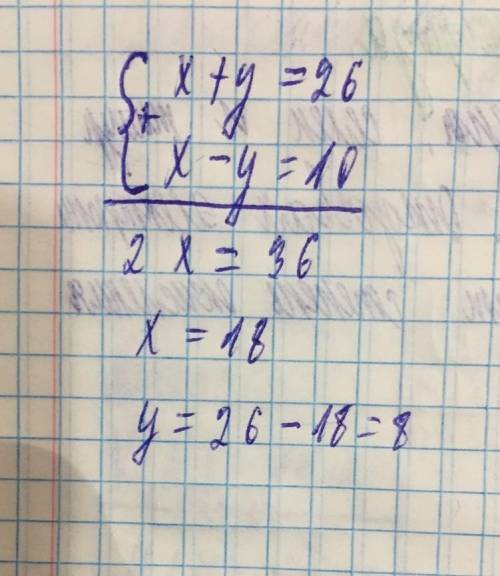 { x + y = 26
+ x - y = 10
2 x = 36
x = 18
y = 26 - 18 = 8